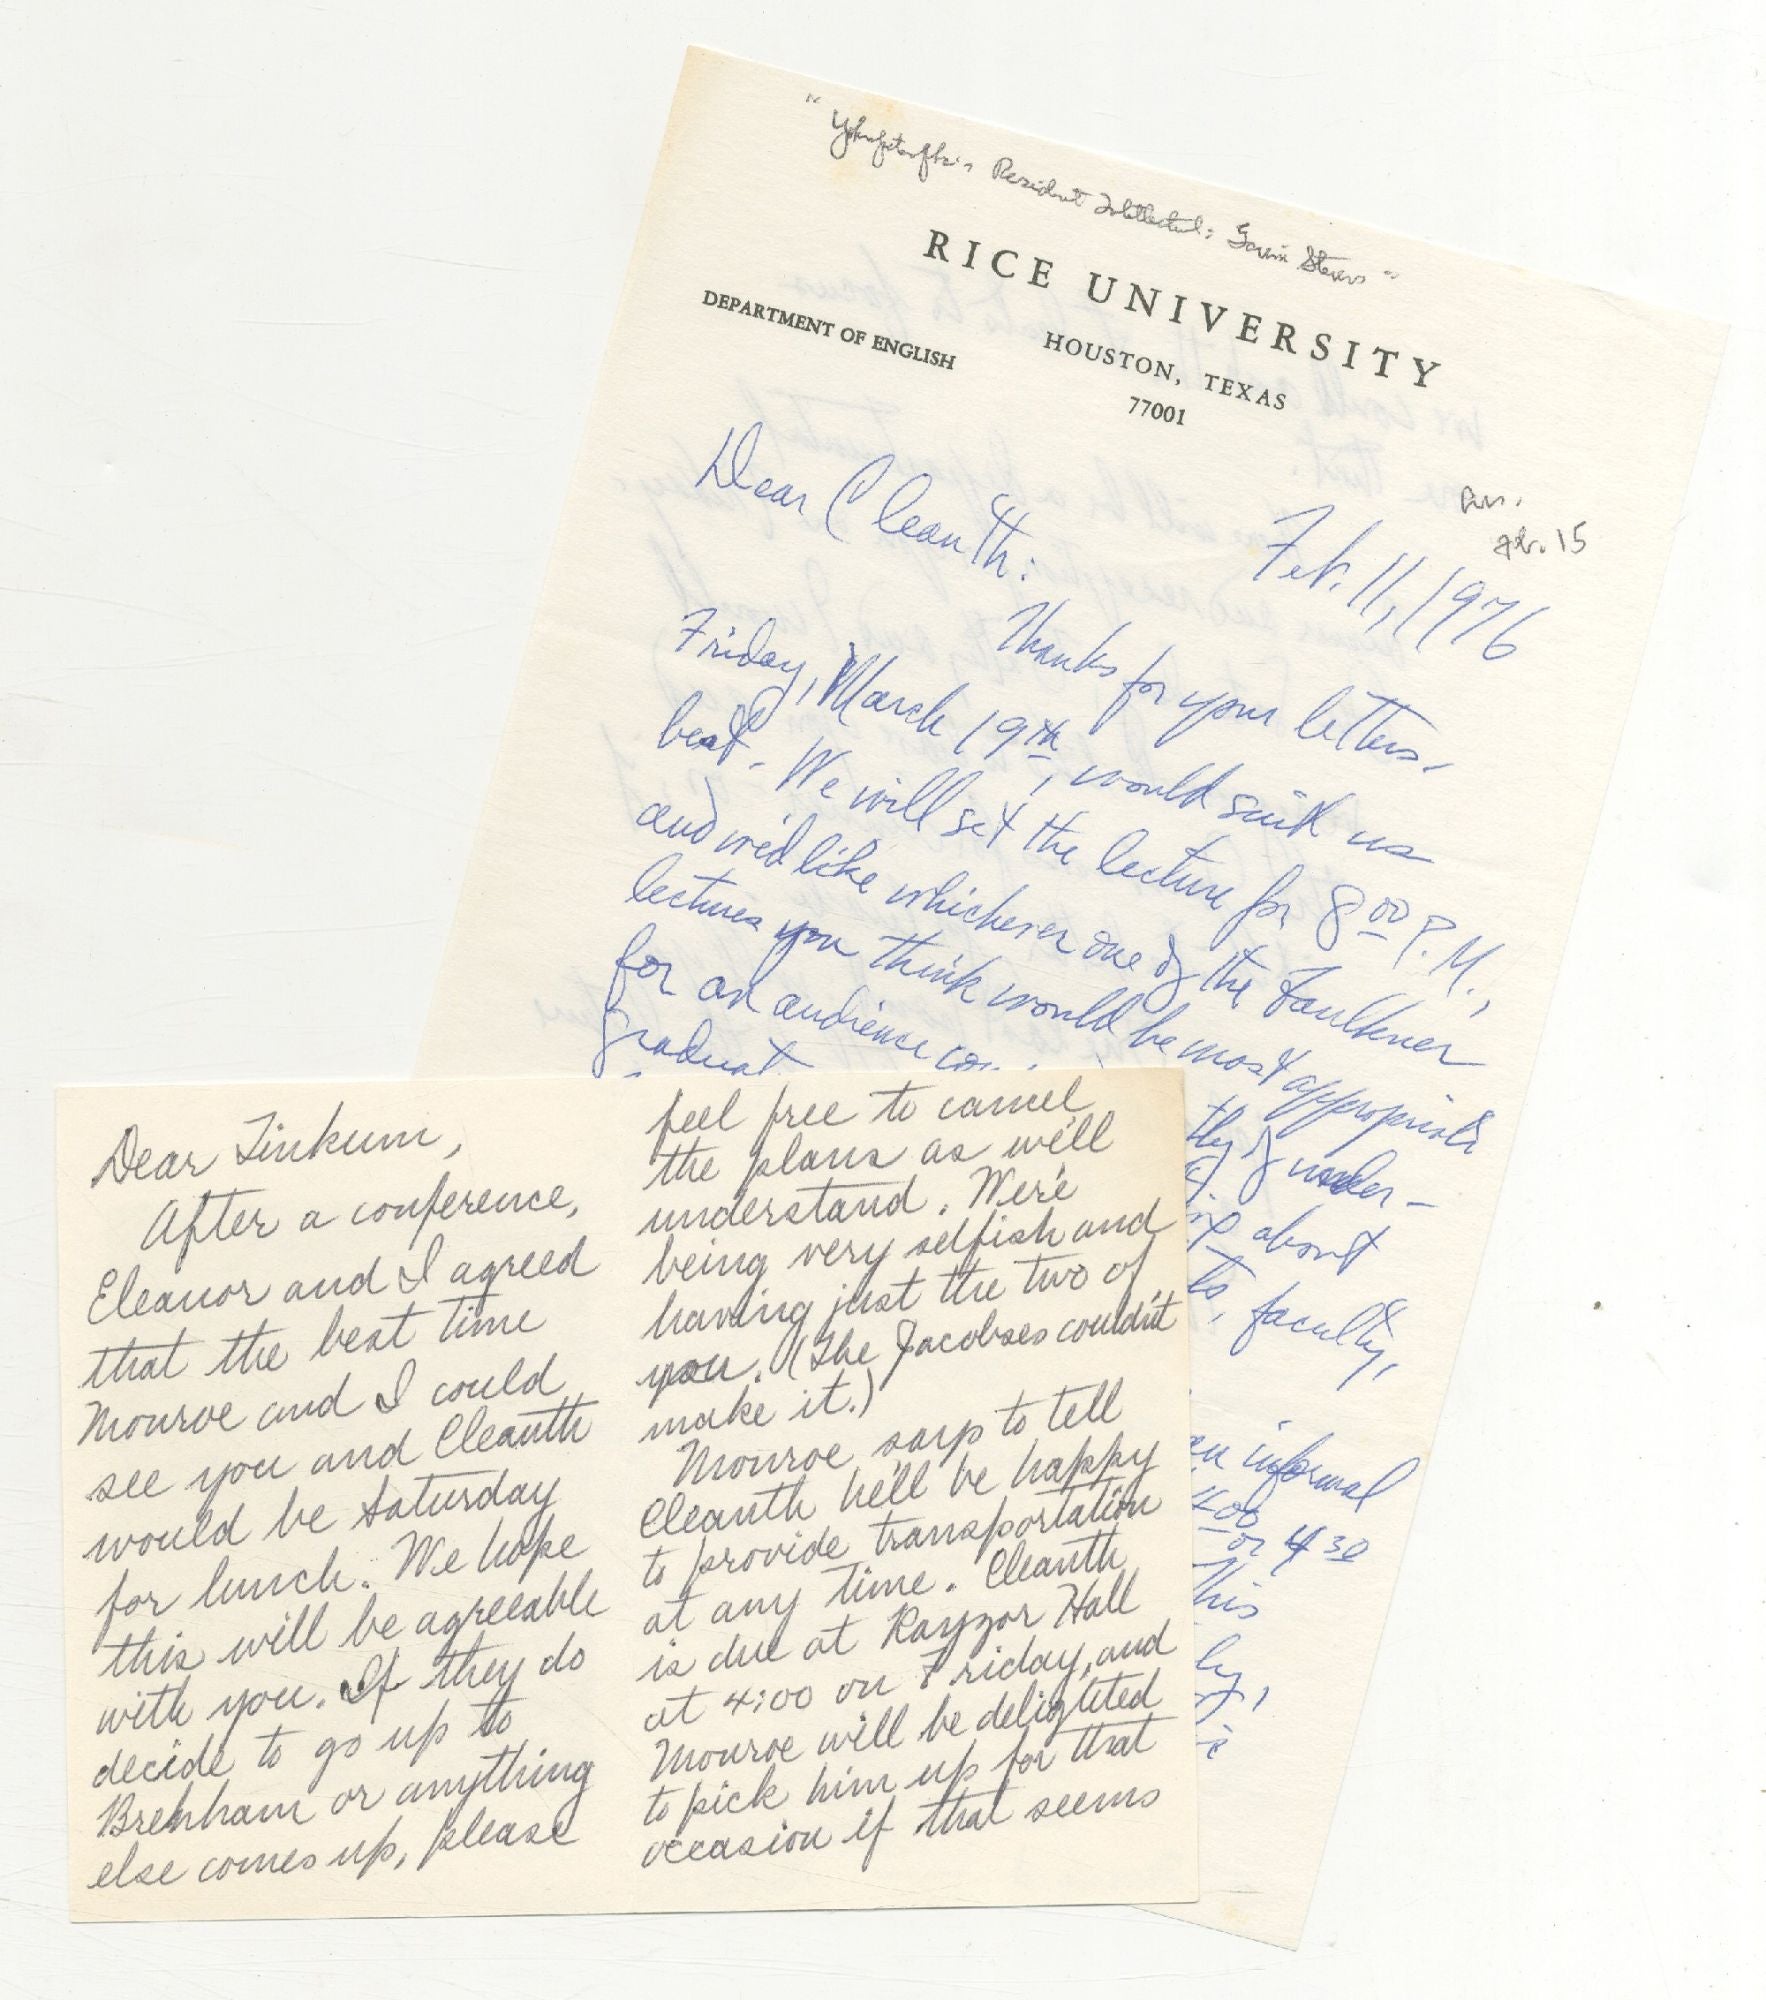 " Yoknapatawpha's Resident Intellectual: Gavin Stevens "
RICE UNIVERSITY
HOUSTON, TEXAS
77001
DEPARTMENT OF ENGLISH
ans.
Feb. 15
Feb. 11, 1976
Dear Cleanth:
Thanks for your letters.
Friday, March 19th, would suit us
best. We will set the lecture for 8 00 P.M.,
and we'd like whichever one of the Faulkner
lectures you think would be most appropriate
for an audience
graduat
tly of under-
about
ts, faculty,
en informal
4 00 or 4 30
This
by,
Dear Tinkum,
After a conference,
Eleanor and I agreed
that the best time
Monroe and I could
see you and Cleanth
would be Saturday
for lunch. We hope
this will be agreeable
with you. If they do
decide to go up to
Brenham or anything
else comes up, please
feel free to cancel
the plans as we'll
understand. We're
being very selfish and
having just the two of
you. (The Jacobses couldn't
make it.)
Monroe says to tell
Cleanth he'll be happy
to provide transportation
at any time. Cleanth
is due at Rayzor Hall
at 4:00 on Friday, and
Monroe will be delighted
to pick him up for that
occasion if that seems